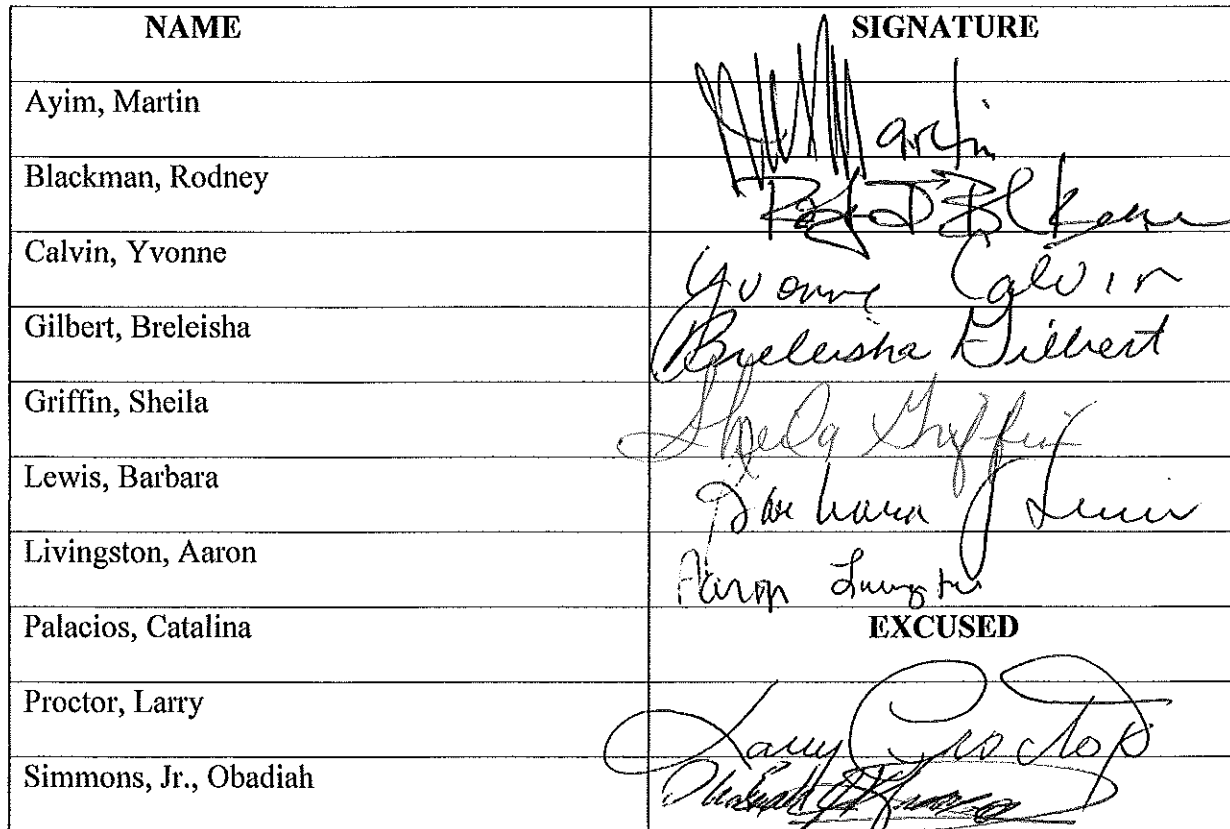 NAME SIGNATURE
Ayim, Martin Martin
Blackman, Rodney
Calvin, Yvonne Yvonne Calvin
Gilbert, Breleisha Breleisha Gilbert
Griffin, Sheila Sheila Griffin
Lewis, Barbara Barbara J Lewis
Livingston, Aaron Aaron Livingston
Palacios, Catalina EXCUSED
Proctor, Larry Larry Proctor
Simmons, Jr., Obadiah Obadiah